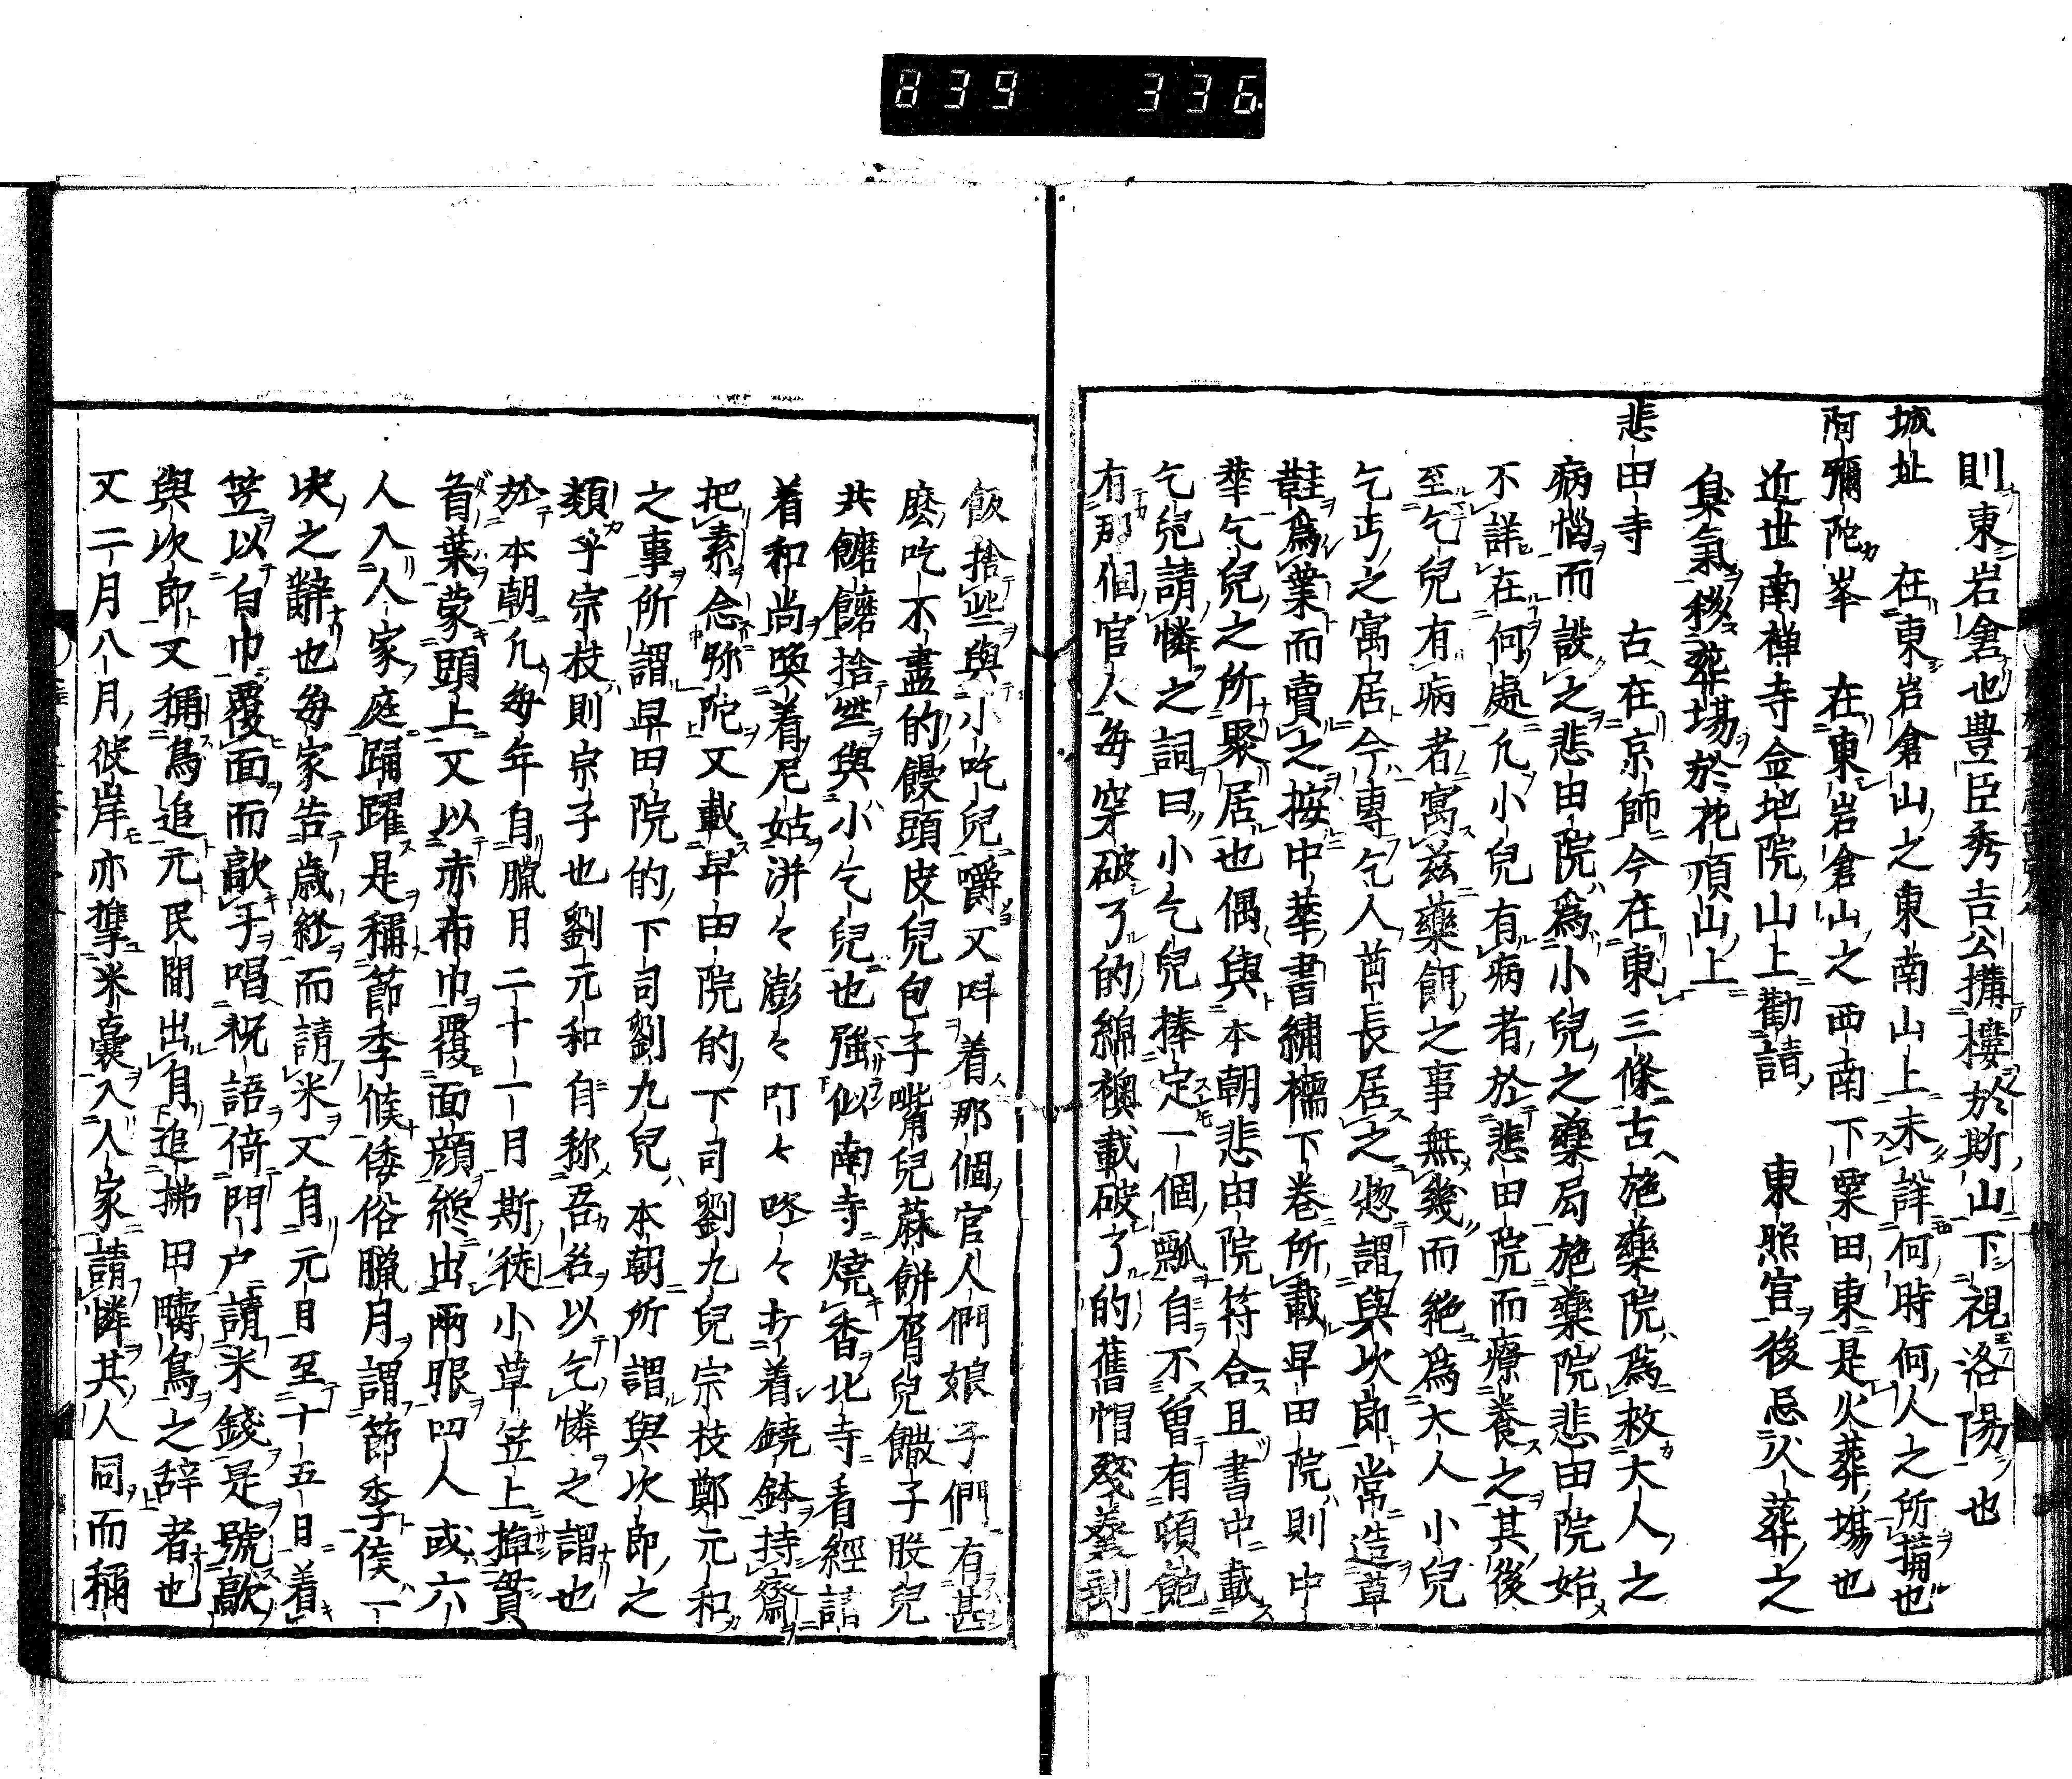 839 336
則東岩倉也豊臣秀吉公搆樓於斯山下視洛陽也
城址 在東岩倉山之東南山上未詳何時何人之所搆也
阿彌陀峯 在東岩倉山之西南下粟田東是火葬塲也
近世南禅寺金地院山上勸請 東照宮後忌火葬之
臭氣移葬塲於花頂山上
悲田寺 古在京師今在東三條古施藥院爲救大人之
病惱而設之悲田院爲小兒之藥局施藥院悲田院始
不詳在何處凢小兒有病者於悲田院而療養之其後
至乞兒有病者寓兹藥餌之事無幾而絶爲大人小兒
乞丐之寓居今專乞人酋長居之惣謂與次郎常造草
鞋爲業而賣之按中華書繡襦下卷所載早田院則中
華乞兒之所聚居也偶與本朝悲田院符合且書中載
乞兒請憐之詞曰小乞兒捧定一個瓢自不曾有頓飽
有那個官人毎穿破了的綿襖戴破了的舊帽殘羹剩
飯捨些與小吃兒嚼又呌着那個官人們娘子們有甚
麽吃不盡的饅頭皮兒包子嘴兒蔴餅屑兒饊子股兒
共饝饝捨些與小乞兒也強似南寺燒香北寺看經請
着和尚喚着尼姑湴々澎々叮々咚々打着鐃鉢持齋
把素念弥陀又載早田院的下司劉九兒宗枝鄭元和
之事所謂早田院的下司劉九兒本朝所謂與次郎之
類乎宗枝則宗子也劉元和自称吾名以乞憐之謂也
於本朝凢毎年自臘月二十一月斯徒小草笠上揷貫
首葉蒙頭上又以赤布巾覆面顔纔出兩眼四人或六
人入人家庭踊躍是稱節季候倭俗臘月謂節季侯一
决之辭也毎家告歳終而請米又自元日至十五日着
笠以白巾覆面而敲手唱祝語倚門户請米錢是號敲
與次郎又稱鳥追元民間出自追拂田疇鳥之辞者也
又二月八月彼岸亦携米囊入人家請憐其人同而稱